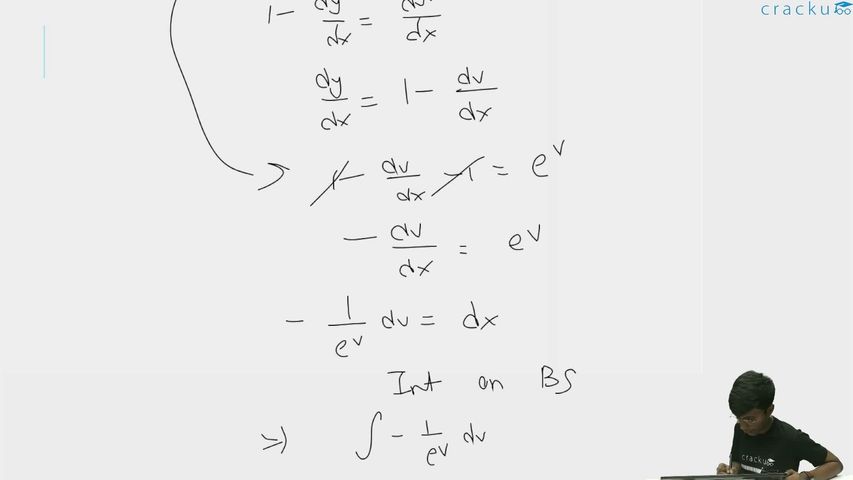 cracku
1 - dy/dx = dv/dx
dy/dx = 1 - dv/dx
=> 1 - dv/dx - 1 = e^v
- dv/dx = e^v
- 1/e^v dv = dx
Int on BS
=> ∫ - 1/e^v dv
cracku